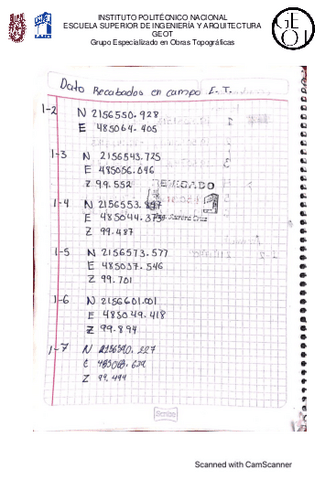 INSTITUTO POLITÉCNICO NACIONAL
ESCUELA SUPERIOR DE INGENIERÍA Y ARQUITECTURA
GEOT
Grupo Especializado en Obras Topográficas
GEOT
Dato Recabados en campo E.T.
1-2 N 2156550.928
E 485064.405
1-3 N 2156543.725
E 485056.696
Z 99.552
REVISADO
1-4 N 2156553.997
E 485044.375
Ing. Sandra Cruz
Z 99.487
1-5 N 2156573.577
E 485037.546
Z 99.701
1-6 N 2156601.001
E 485049.418
Z 99.894
1-7 N 2156590.227
E 485068.629
Z 99.499
Scribe
Scanned with CamScanner